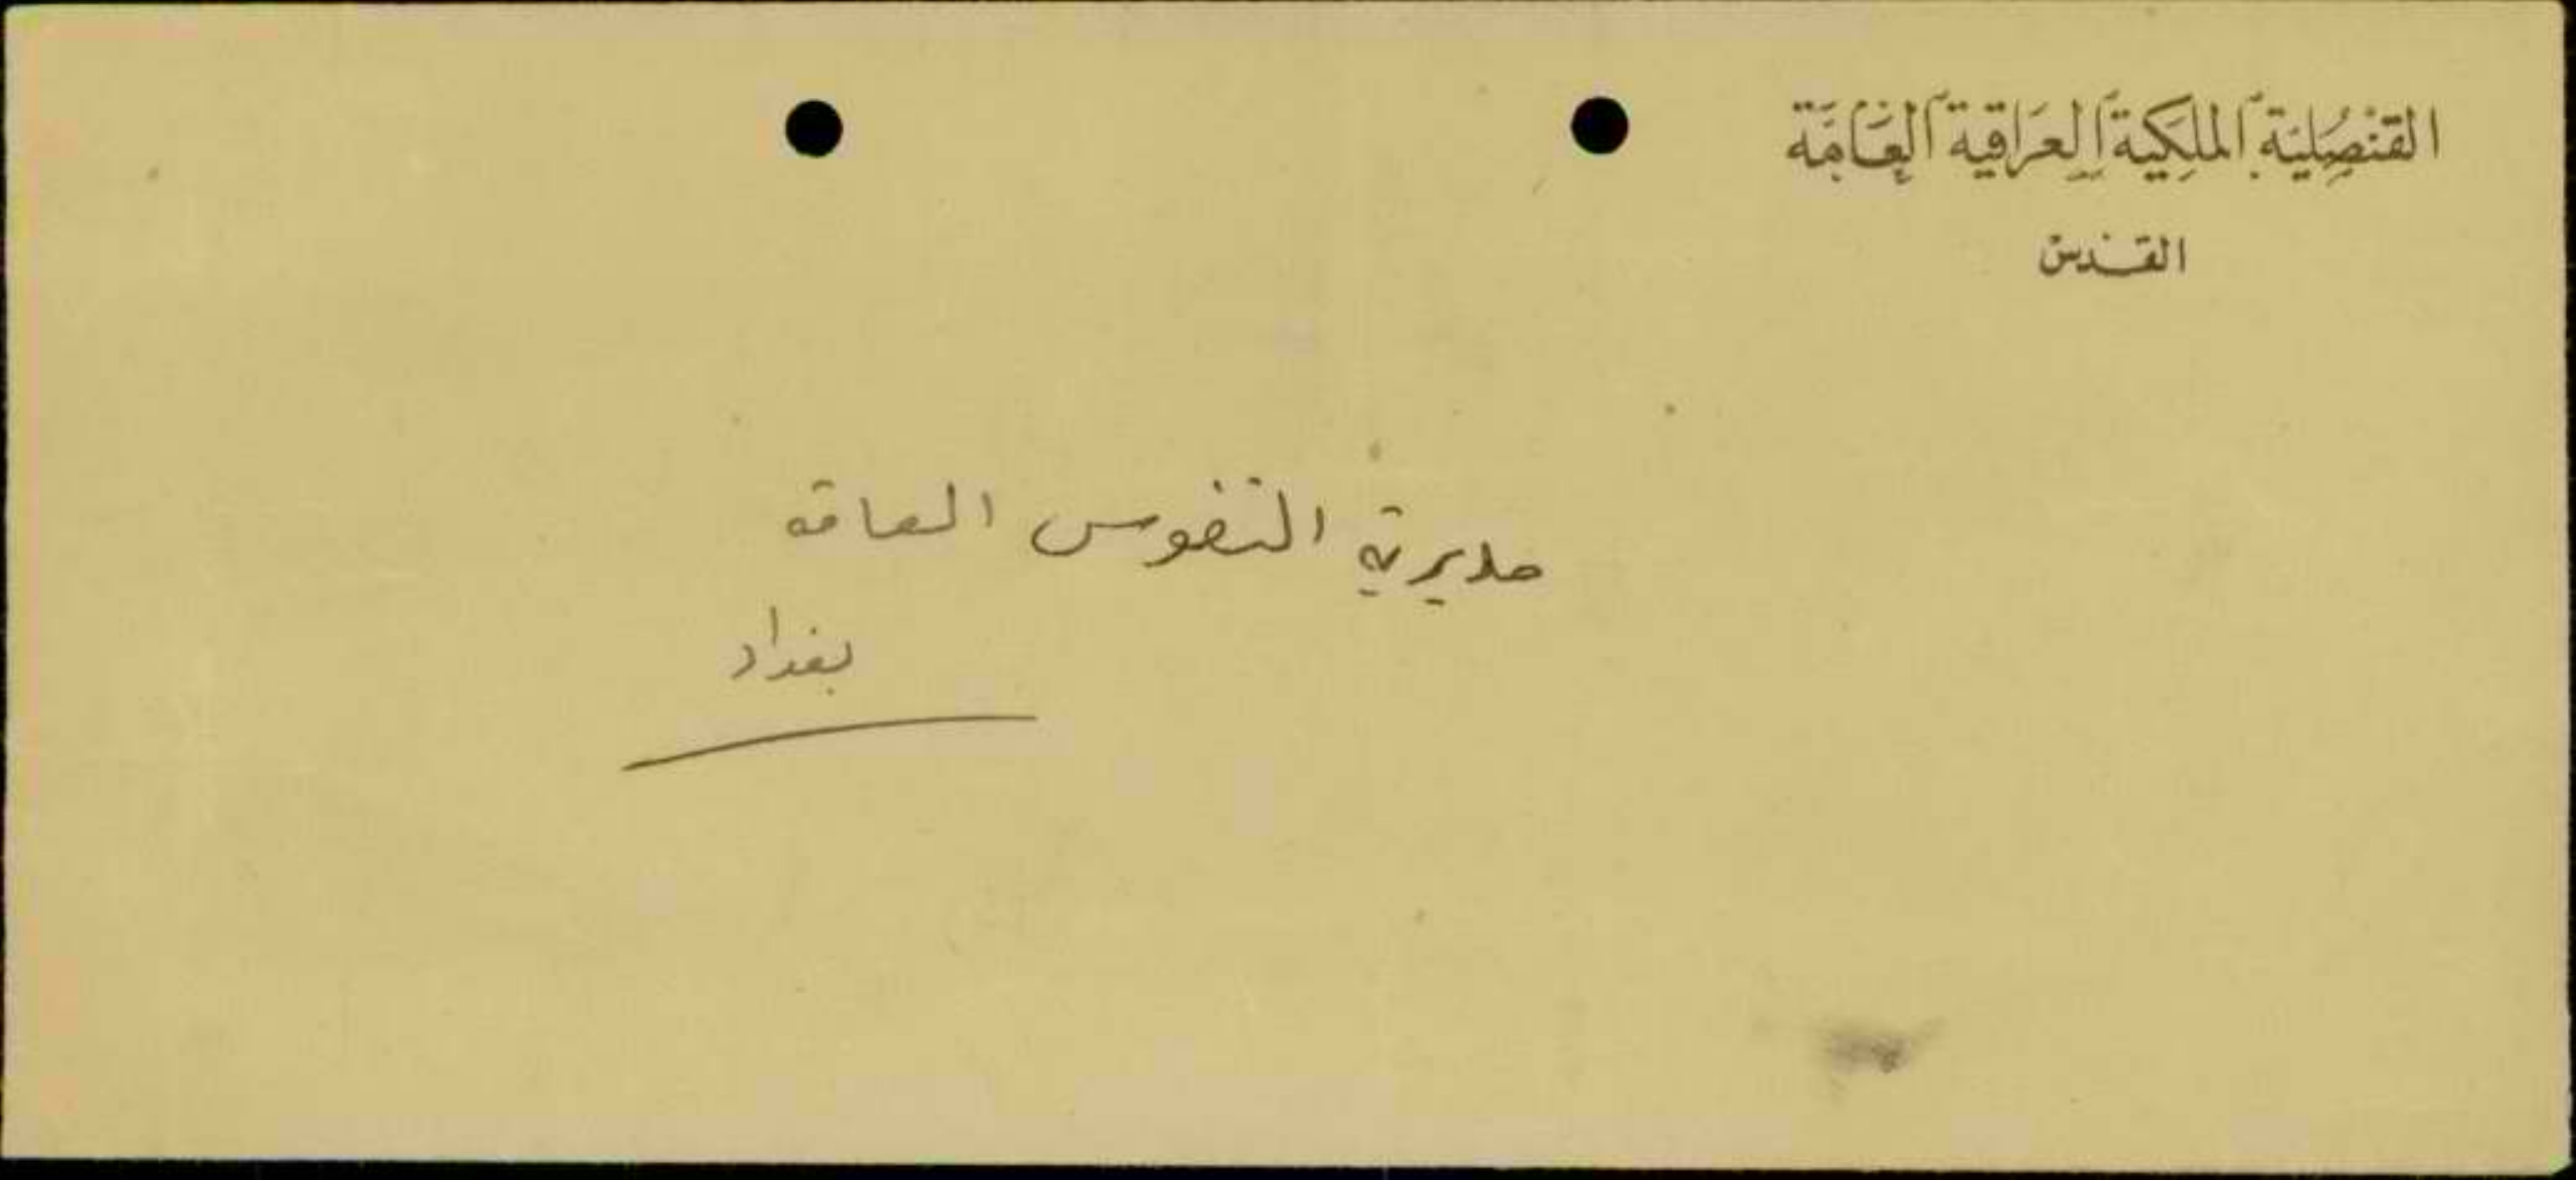 القنصلية الملكية العراقية العامة
القدس
مديرية النفوس العامة
بغداد